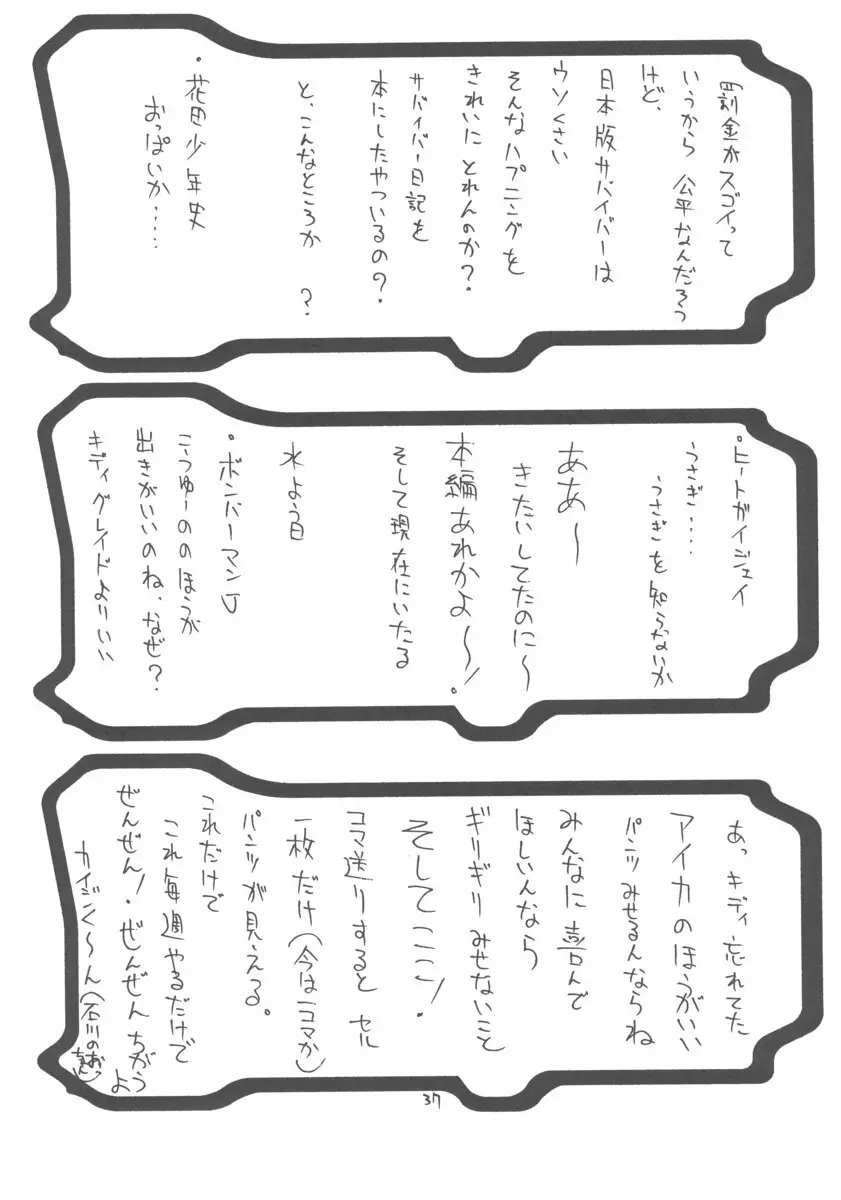 罰金がスゴイって
いうから 公平なんだろう
けど、
日本版サバイバーは
ウソくさい
そんなハプニングを
きれいに とれんのか？
サバイバー日記を
本にしたやついるの？
と、こんなところか ？
・花田少年史
おっぱいか……
・ヒートガイジェイ
うさぎ…
うさぎを知らないか
ああ〜
きたいしてたのに〜
本編あれかよ〜！
そして現在にいたる
水よう日
・ボンバーマンJ
こうゆーののほうが
出きがいいのね、なぜ？
キディグレイドよりいい
あっ キディ忘れてた
アイカのほうがいい
パンツみせるんならね
みんなに喜んで
ほしいんなら
ギリギリ みせないこと
そしてここ！
コマ送りすると セル
一枚だけ（今は一コマか）
パンツが見える。
これだけで
これ毎週やるだけで
ぜんぜん！・ぜんぜん ちがうよ
カイジンく〜ん（石川のおっちゃん）
37